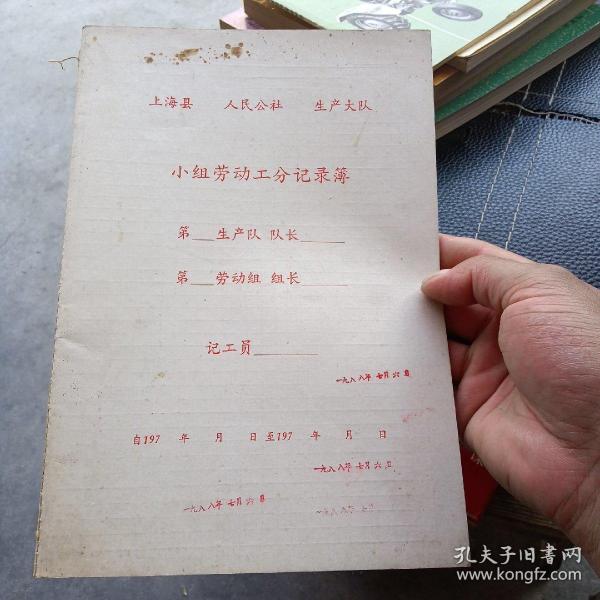 上海县 人民公社 生产大队
小组劳动工分记录簿
第___生产队 队长______
第___劳动组 组长______
记工员________
一九八八年七月六日
自197 年 月 日至197 年 月 日
一九八八年七月六日
一九八八年七月六日
一九八八年七
孔夫子旧书网
www.kongfz.com